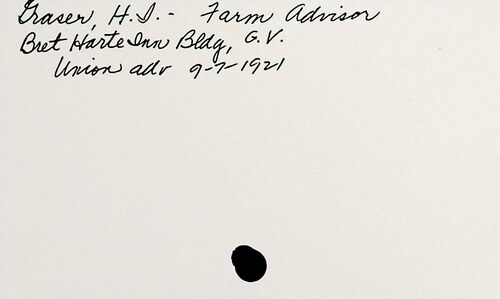 Graser, H.I. - Farm Advisor
Bret Harte Inn Bldg, G.V.
Union adv 9-7-1921